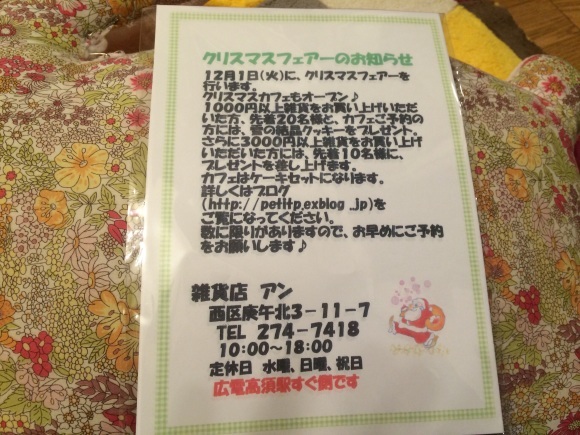 クリスマスフェアーのお知らせ
12月1日(火)に、クリスマスフェアーを
行います。
クリスマスカフェもオープン♪
1000円以上雑貨をお買い上げいただ
いた方、先着20名様と、カフェご予約の
方には、雪の結晶クッキーをプレゼント。
さらに3000円以上雑貨をお買い上げ
いただいた方には、先着10名様に、
プレゼントを差し上げます。
カフェはケーキセットになります。
詳しくはブログ
(http://petitp.exblog.jp)を
ご覧になってください。
数に限りがありますので、お早めにご予約
をお願いします♪
雑貨店 アン
西区庚午北3-11-7
TEL 274-7418
10:00~18:00
定休日 水曜、日曜、祝日
広電高須駅すぐ側です